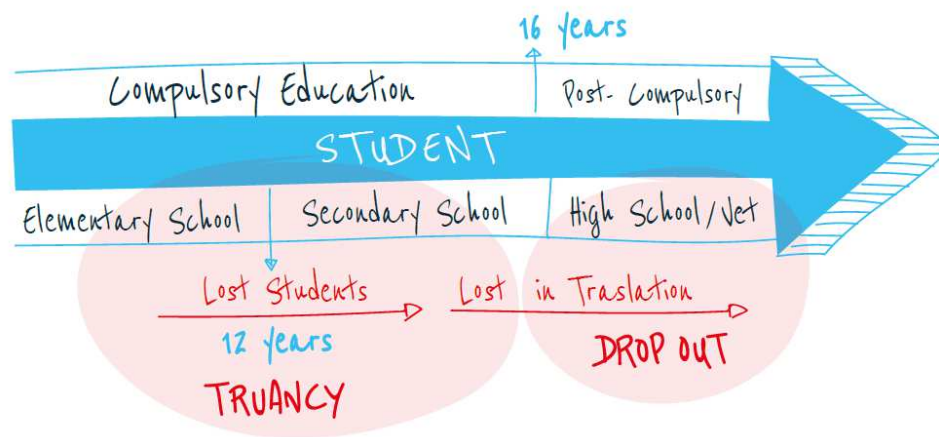 16 years
Compulsory Education
Post-Compulsory
STUDENT
Elementary School
Secondary School
High School/Vet
Lost Students
Lost in Traslation
12 years
DROP OUT
TRUANCY